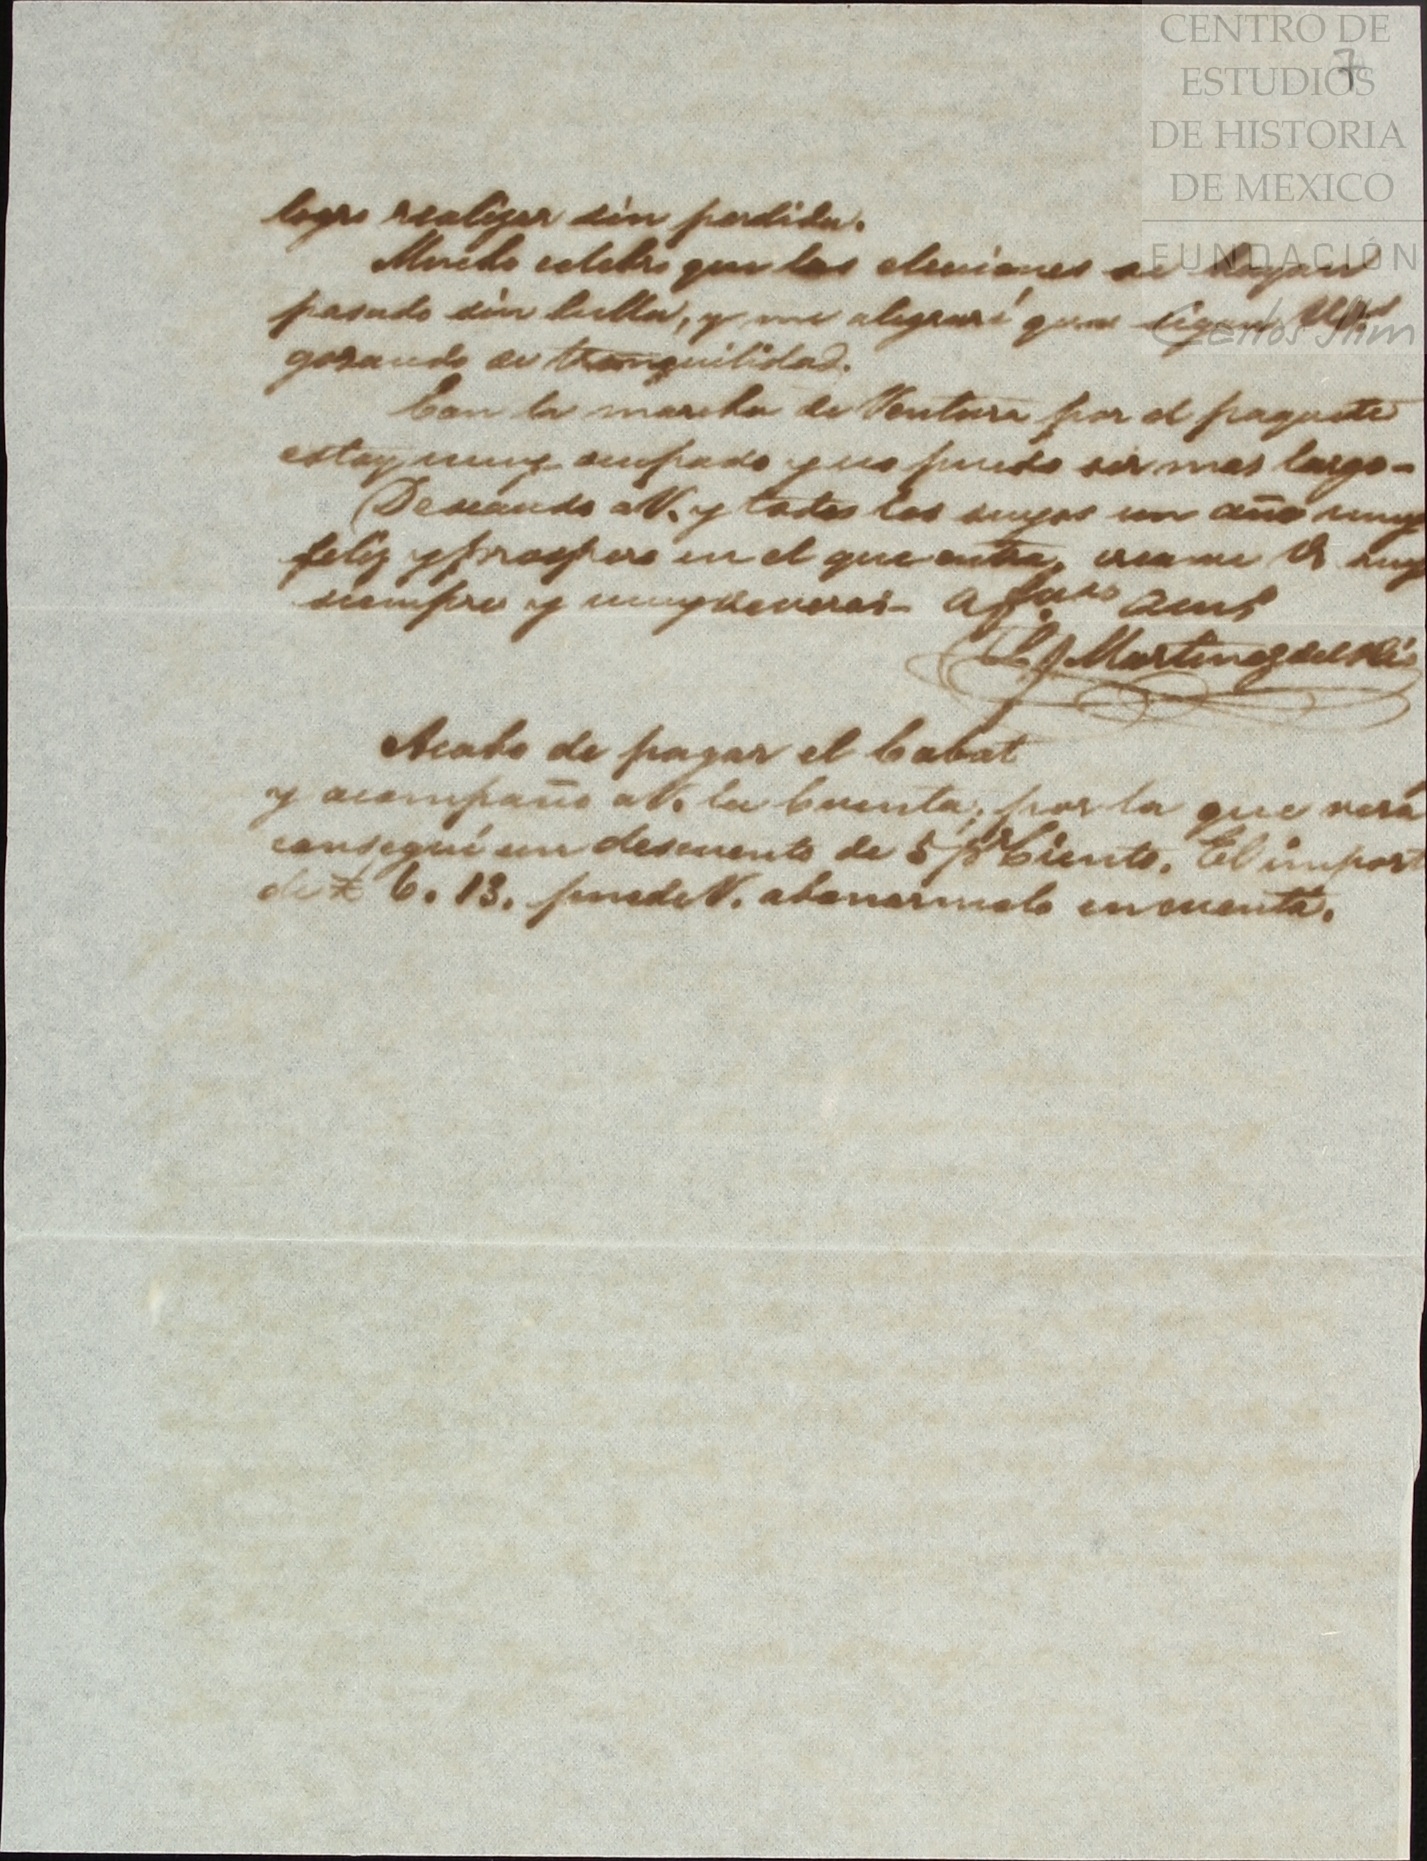 7
CENTRO DE
ESTUDIOS
DE HISTORIA
DE MEXICO
FUNDACIÓN
Carlos Slim
logro realizar sin perdida.
Mucho celebro que las elecciones se hayan
pasado sin bulla, y me alegraré que sigan VV.
gozando de tranquilidad.
Con la marcha de Ventura por el paquete
estoy muy ocupado y no puedo ser mas largo-
Deseando a V. y todos los suyos un año muy
feliz y prospero en el que entra, creame V. muy
siempre y muy deveras-
Martinez del Rio
Acabo de pagar el Cabat
y acompaño a V. la cuenta, por la que verá
conseguí un descuento de 5 pr Ciento. El import
de £ 6. 13. puede V. abonarmelo en cuenta.